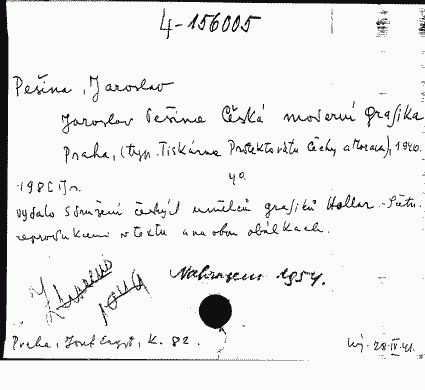 4-156005
Pešina, Jaroslav
Jaroslav Pešina Česká moderní grafika
Praha, (typ. Tiskárna Protektorátu Čechy a Morava), 1940.
4o.
vydalo Sdružení českých umělců grafiků Hollar. S četn.
reprodukcemi v textu a na obou obálkách.
Nahrazeno 1954.
Praha, Josef Ergst, k. 82.
28.IV.41.